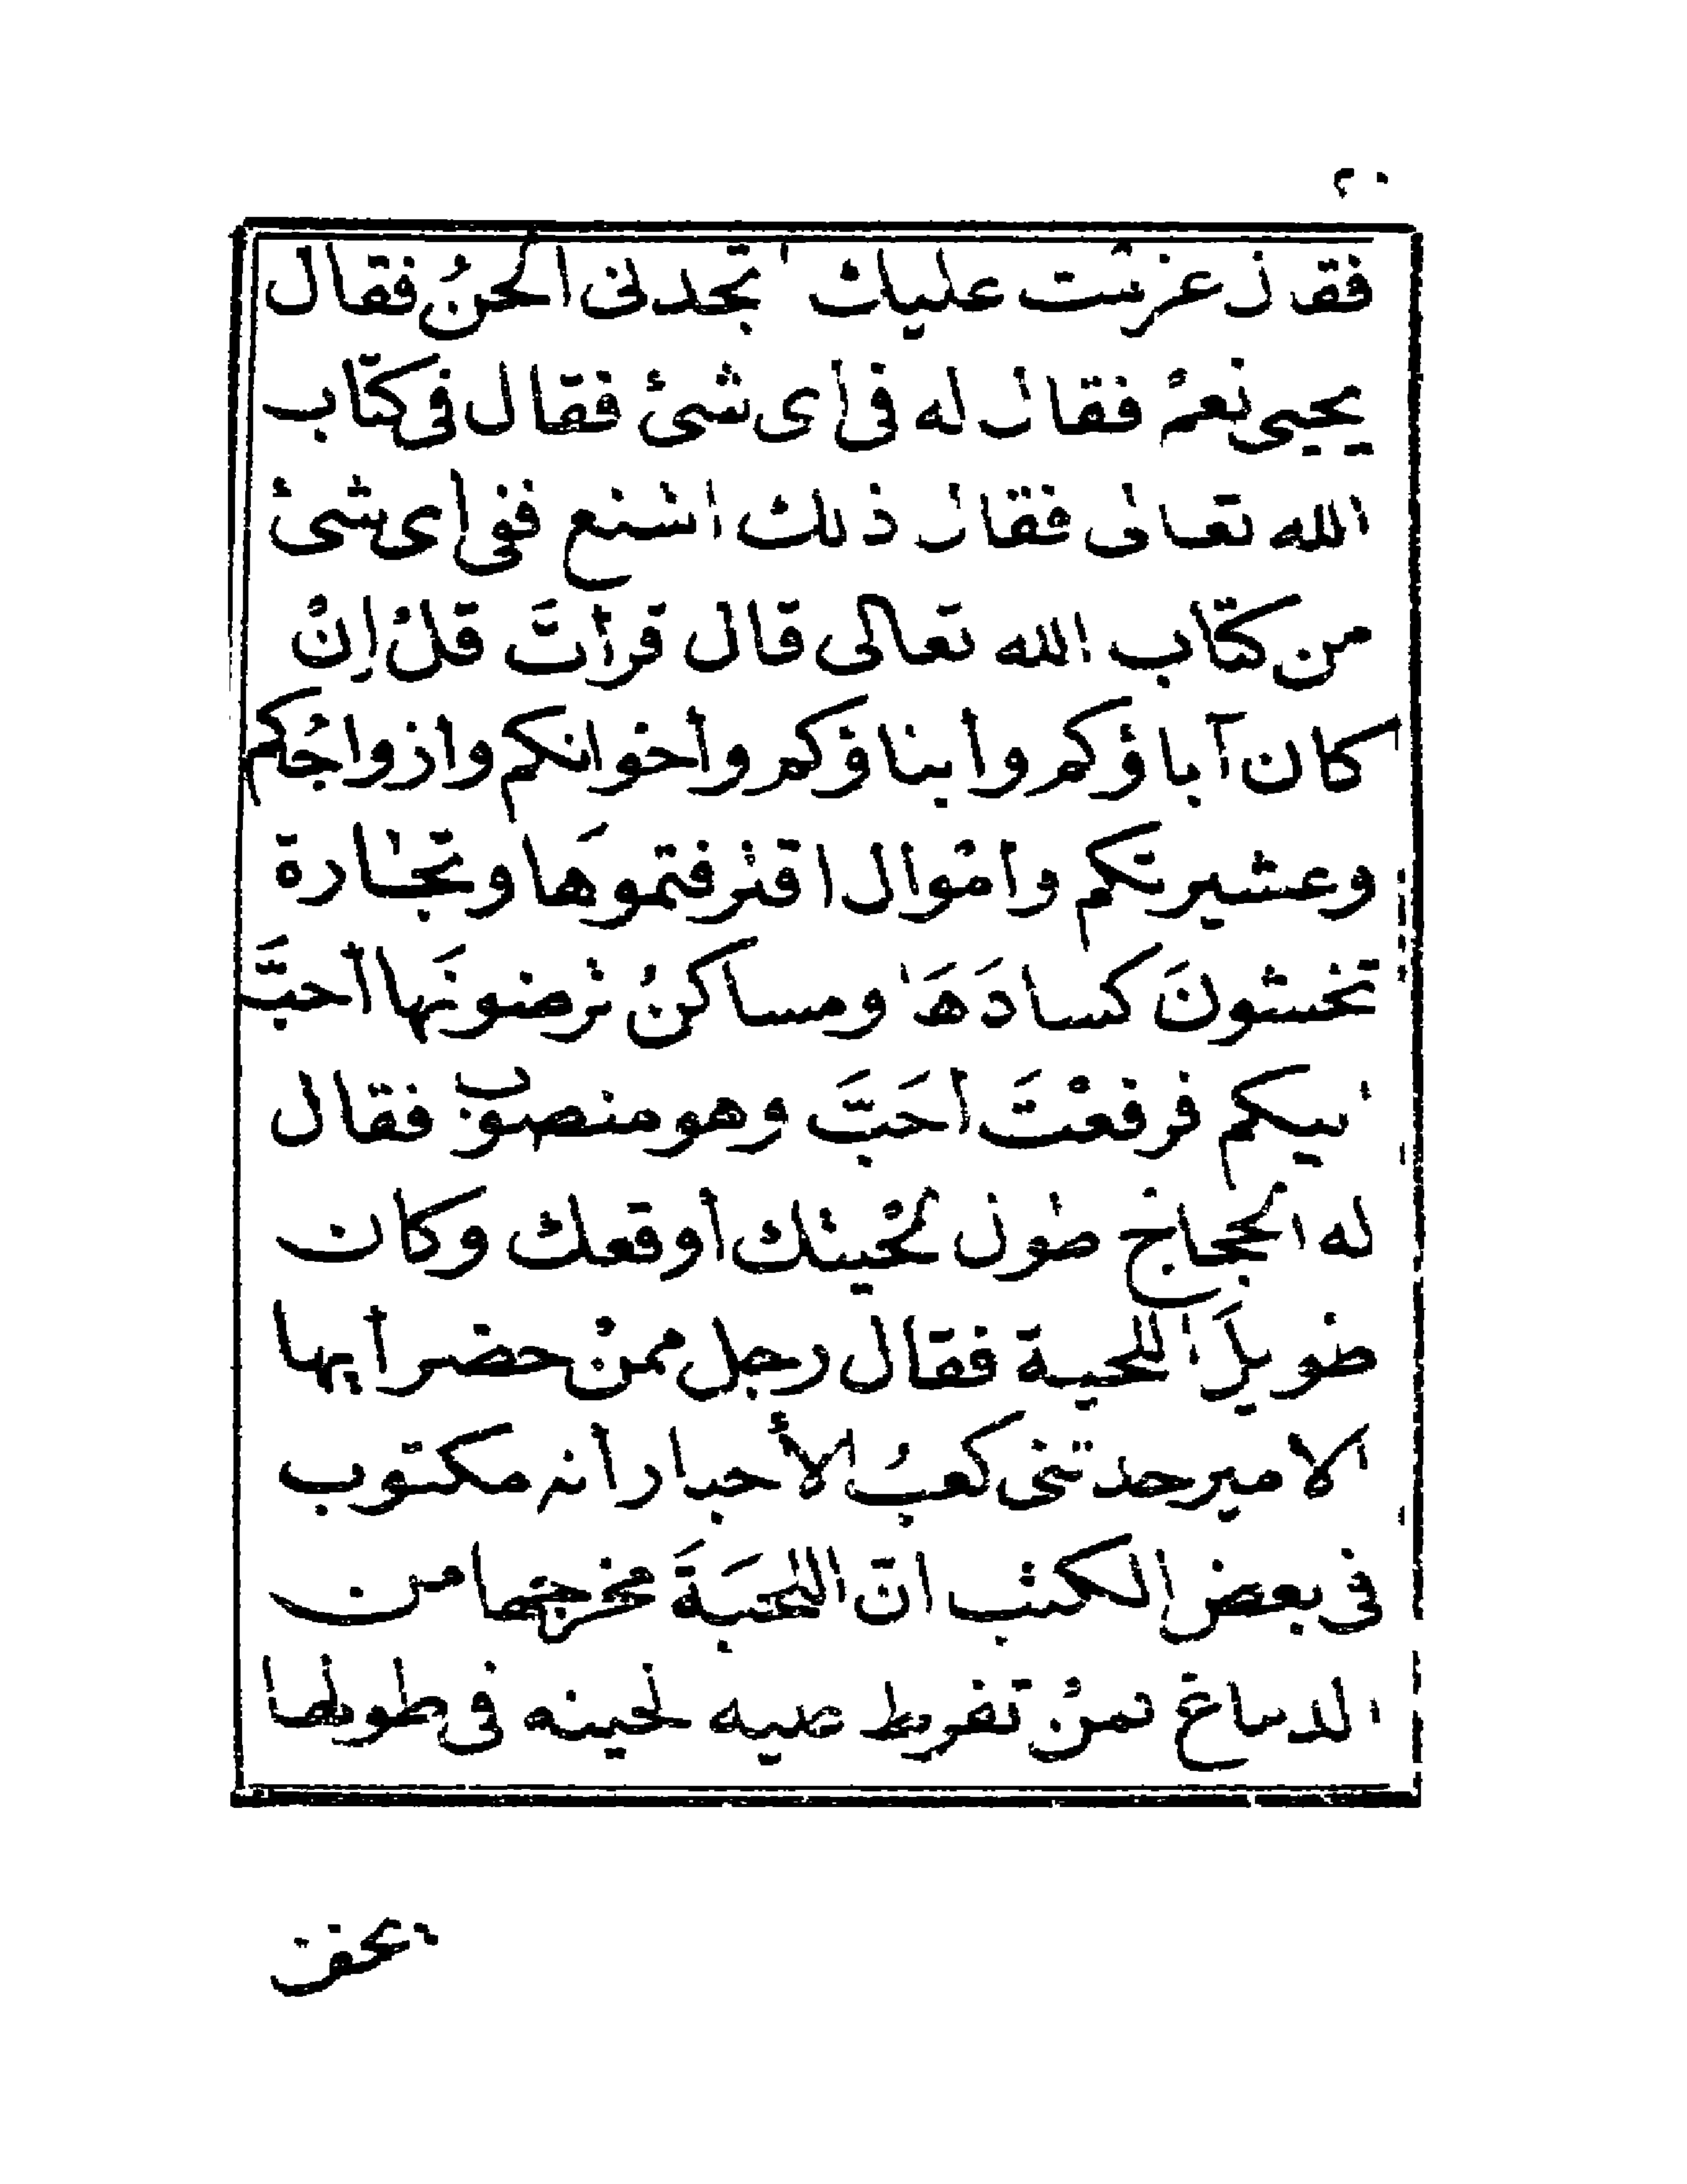 ٢٠
فقال عزمت عليك أتجدنى ألحنُ فقال
يحيى نعمْ فقال له فى اى شئ فقال فى كتاب
الله تعالى فقال ذلك اشنع ففى اى شئ
من كتاب الله تعالى قال قرأتَ قلْ إنْ
كان آباؤكم وأبناؤكم وأخوانكم وازواجُكم
وعشيرتكم وامْوال اقترفتموهَا وتجارة
تخشونَ كسادَهَا ومساكنُ ترضونَها أحبَّ
اليكم فرفعْتَ أحَبَّ وهو منصوب فقال
له الحجاج طول لحْيتك أوقعك وكان
طويلَ اللحية فقال رجل ممنْ حضر أيها
الامير حدثنى كعبُ الأحبار أنه مكتوب
فى بعض الكتب انّ اللحيَةَ مخرجها من
الدماغ فمنْ تفرط عليه لحيته فى طولها